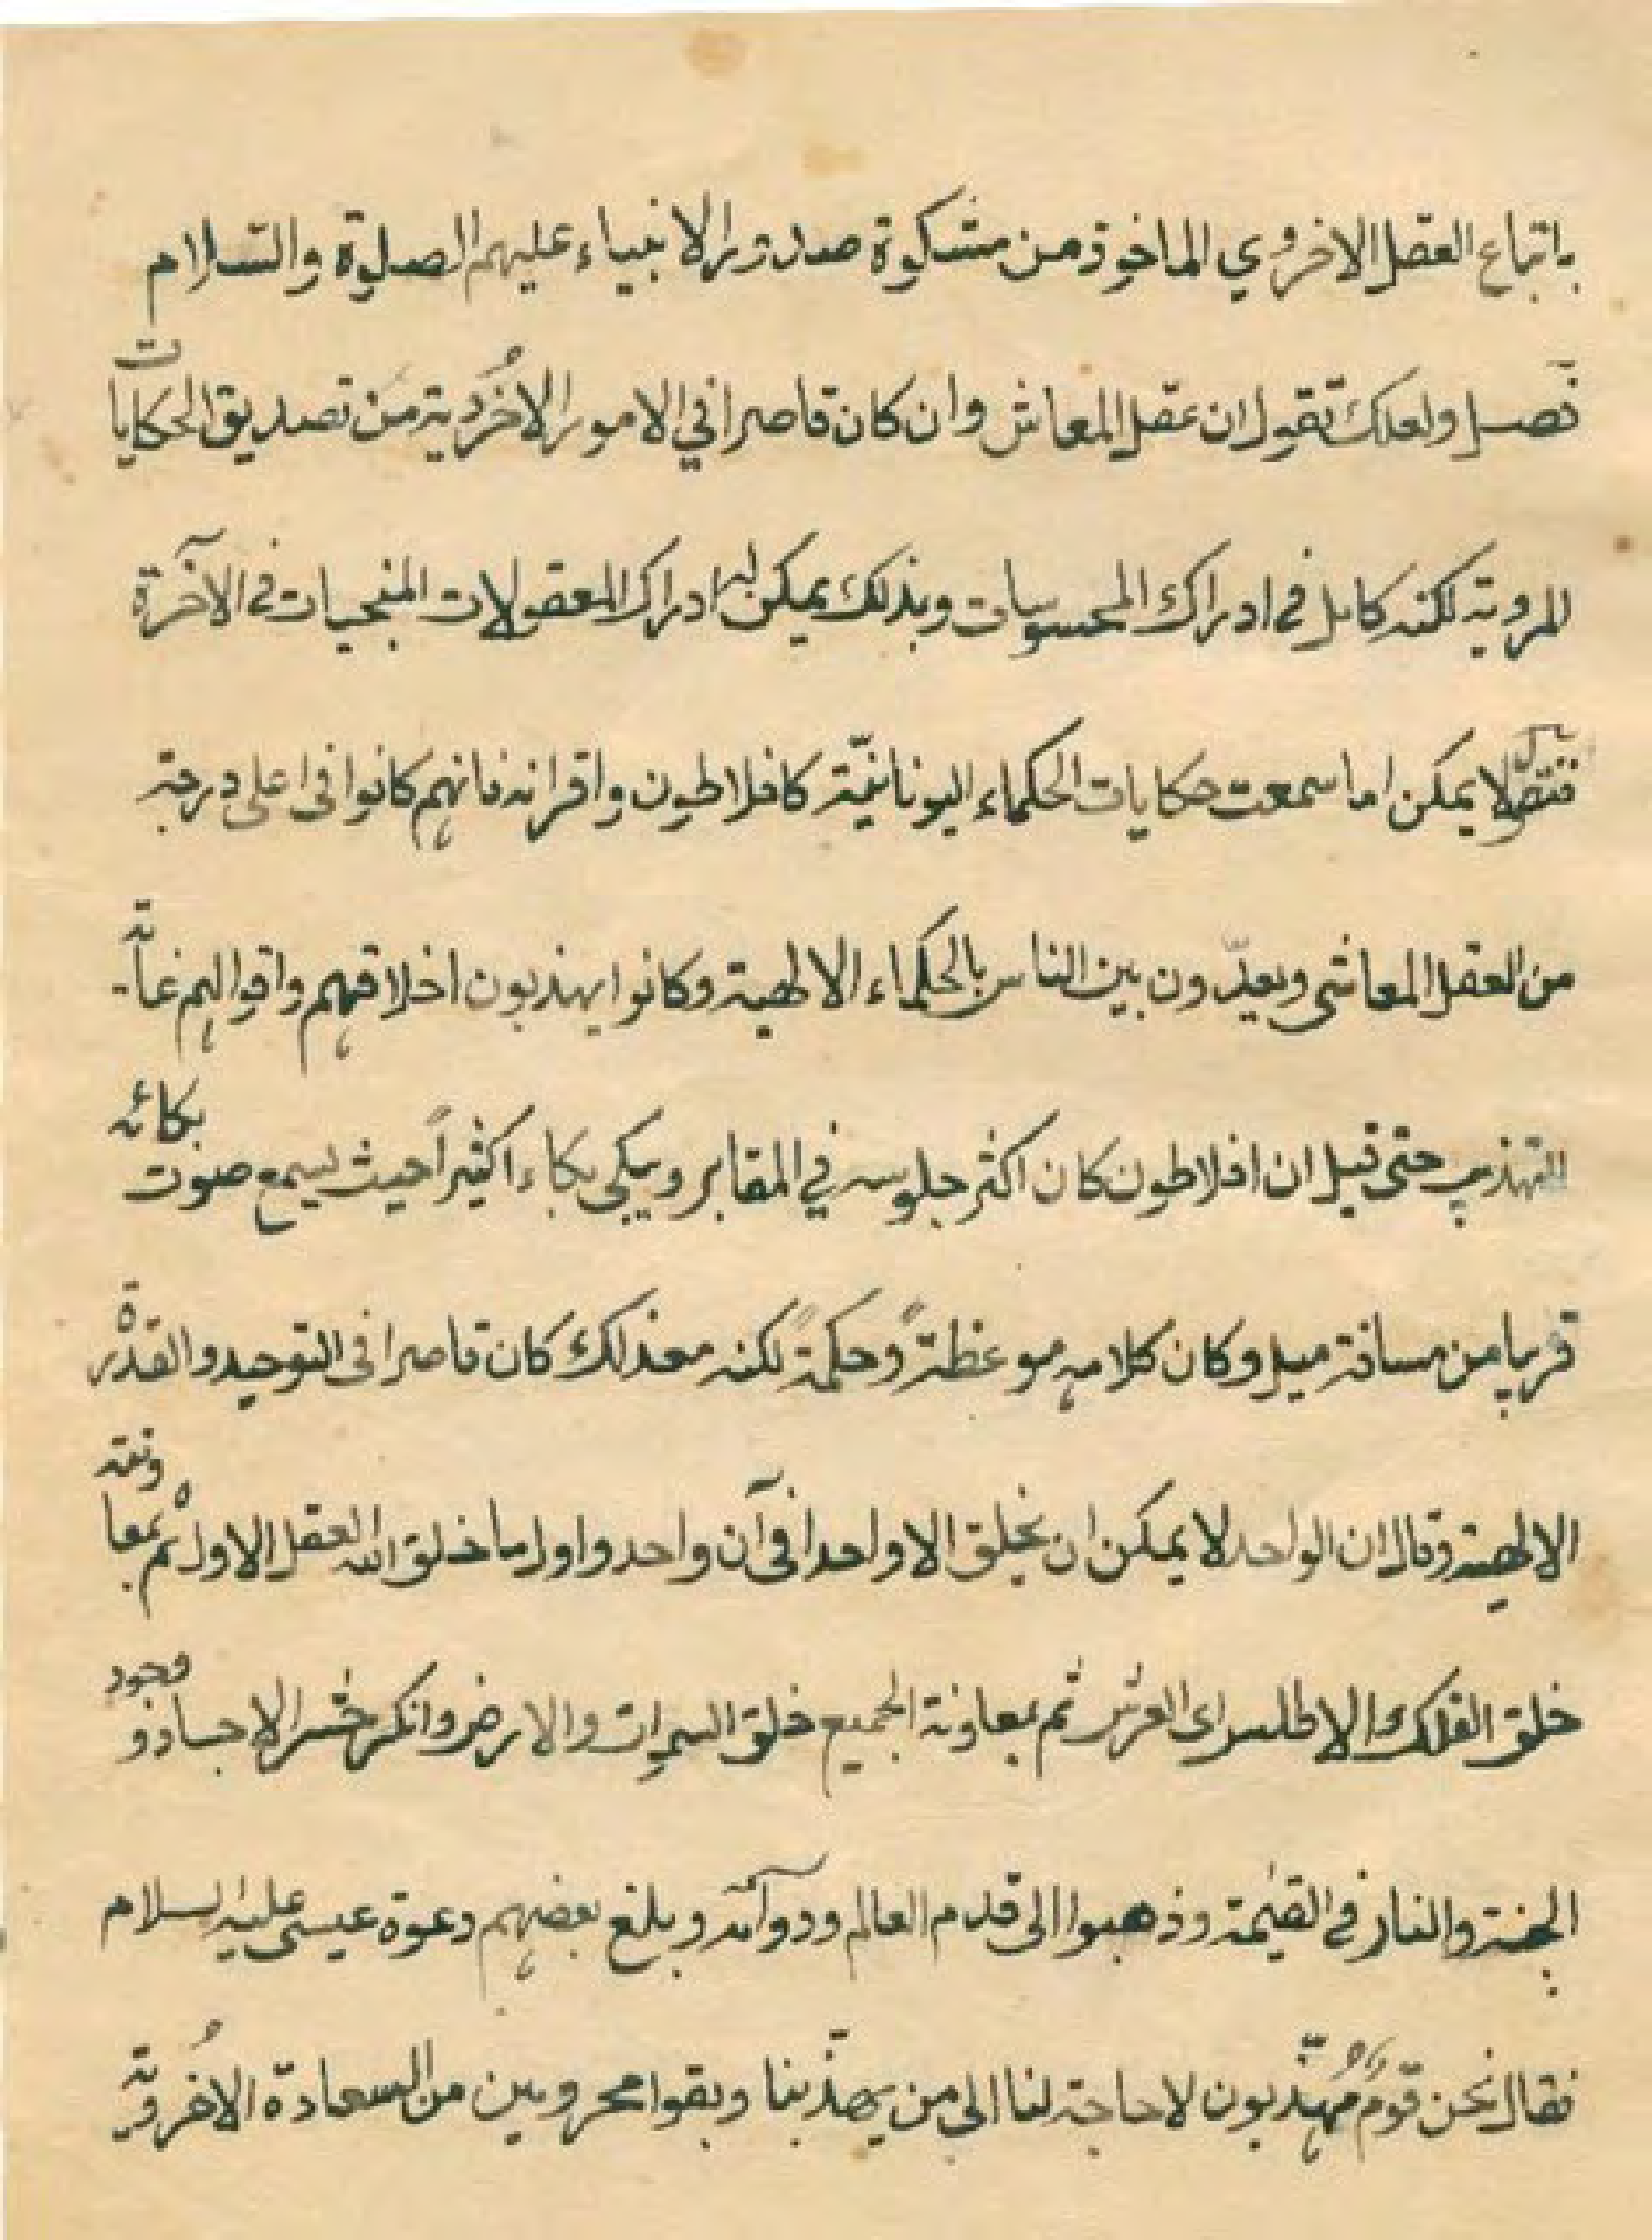 باتباع العقل الاخروي الماخوذ من مشكوة صدور الانبياء عليهم الصلوة والسلام
فصل ولعلك تقول ان عقل المعاش وان كان قاصرا في الامور الاخُروية من تصديق الحكايات
المروية لكنه كامل في ادراك المحسوسات وبذلك يمكن له ادراك المعقولات المنجيات في الآخرة
فنقول لا يمكن اما سمعت حكايات الحكماء اليونانيّة كافلاطون واقرانه فانهم كانوا في اعلى درجة
من العقل المعاشي ويعدّون بين الناس بالحكماء الالهية وكانوا يهذبون اخلاقهم واقوالهم غاية
التهذيب حتى قيل ان افلاطون كان اكثر جلوسه في المقابر ويبكي بكاء اكثيراً حيث يسمع صوت بكائه
قريبا من مسافة ميل وكان كلامه موعظةً وحكمةً لكنه معذلك كان قاصرا في التوحيد والقدرة
الالهية وقال ان الواحد لا يمكن ان يخلق الا واحدا في آن واحد واول ما خلق الله العقل الاول ثم بمعاونته
خلق الفلك الاطلس اى العرش ثم بمعاونة الجميع خلق السموات والارض وانكر حشر الاجساد و وجود
الجنة والنار في القيمة وذهبوا الى قدم العالم ودوامه وبلغ بعضهم دعوة عيسى عليه السلام
فقال نحن قومٌ مُهذّبون لا حاجة لنا الى من يهذّبنا وبقوا محرومين من السعادة الاخُروية